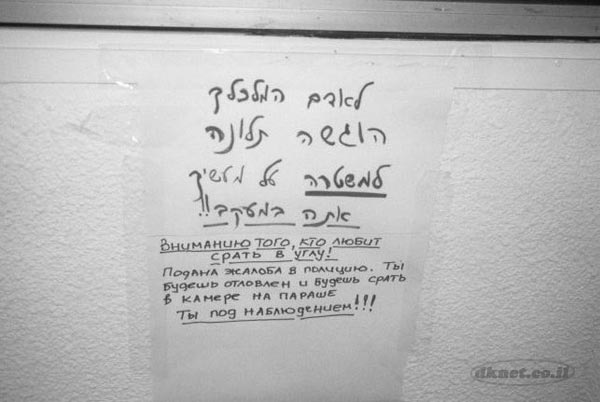 לאדם המלכלך
הוגשה תלונה
למשטרה על מעשיך
אתה במעקב!!
Вниманию того, кто любит
срать в углу!
Подана жалоба в полицию. Ты
будешь отловлен и будешь срать
в камере на параше
Ты под наблюдением!!!
dknet.co.il